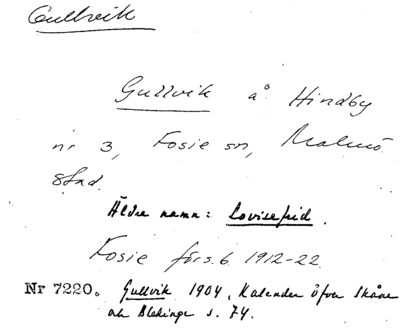 Gullvik
Gullvik å Hindby
nr 3, Fosie sn, Malmö
stad.
Äldre namn: Lovisefrid.
Fosie förs. b. 1912-22.
Nr 7220. Gullvik 1904, Kalender öfver Skåne
och Blekinge s. 74.